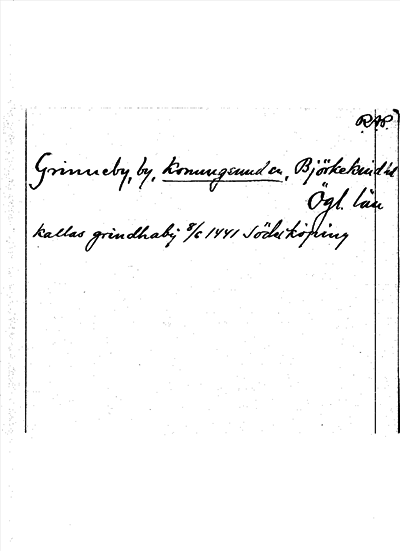 R.A.P.
Grinneby, by, Konungsund sn, Björkekind hd
Ögl. län
kallas grindhaby 8/6 1441 Söderköping